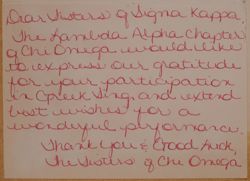 Dear Sisters of Sigma Kappa,
The Lambda Alpha Chapter
of Chi Omega would like
to express our gratitude
for your participation
in Greek Sing, and extend
best wishes for a
wonderful performance.
Thank You & Good Luck,
The Sisters of Chi Omega